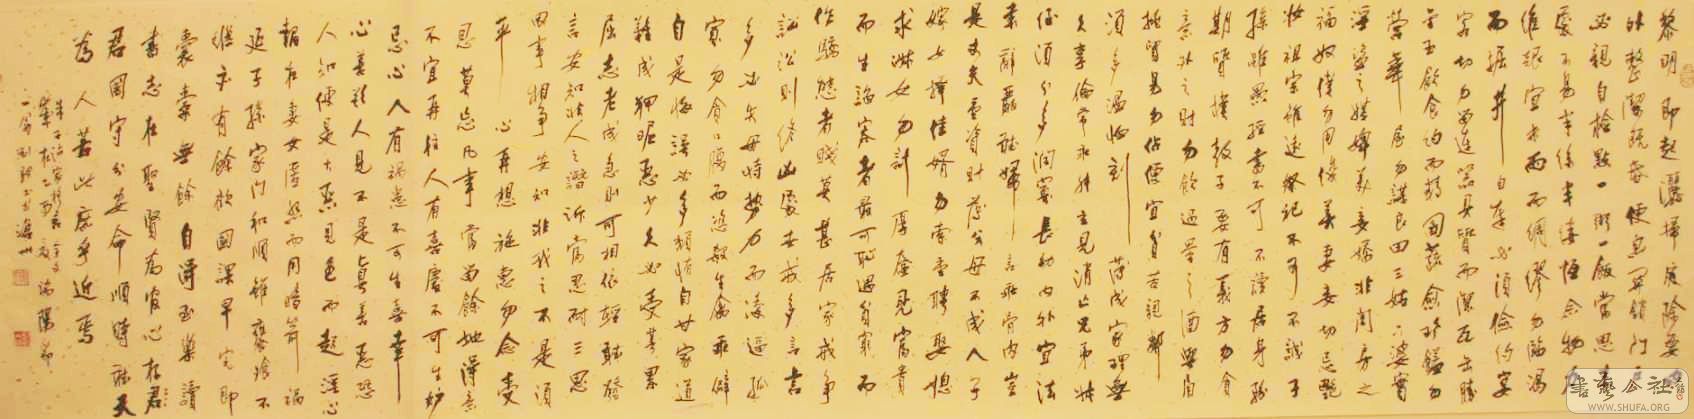 黎明即起灑掃庭除要內
外整潔既昏便息關鎖門戶
必親自檢點一粥一飯當思來
處不易半絲半縷恒念物力
維艱宜未雨而綢繆勿臨渴
而掘井自奉必須儉約宴
客切勿留連器具質而潔瓦缶勝
金玉飲食約而精園蔬愈珍饈勿
營華屋勿謀良田三姑六婆實
淫盜之媒婢美妾嬌非閨房之
福奴僕勿用俊美妻妾切忌艷
妝祖宗雖遠祭祀不可不誠子
孫雖愚經書不可不讀居身務
期質樸教子要有義方勿貪
意外之財勿飲過量之酒與肩
挑貿易勿佔便宜貧苦親鄰
須多溫恤刻薄成家理無
久享倫常乖舛立見消亡兄弟叔
侄須分多潤寡長幼內外宜法
肅辭嚴聽婦言乖骨肉豈
是丈夫重資財薄父母不成人子
嫁女擇佳婿勿索重聘娶媳
求淑女勿計厚奩見富貴
而生諂容者最可恥遇貧窮而
作驕態者賤莫甚居家戒爭
訟訟則終凶處世戒多言言
多必失毋恃勢力而凌逼孤
寡勿貪口腹而恣殺生禽乖僻
自是悔誤必多頹惰自甘家道
難成狎昵惡少久必受其累
屈志老成急則可相依輕聽發
言安知非人之譖訴當忍耐三思
因事相爭安知非我之不是須
平心再想施惠勿念受
恩莫忘凡事當留餘地得意
不宜再往人有喜慶不可生妒
忌心人有禍患不可生喜幸
心善欲人見不是真善惡恐
人知便是大惡見色而起淫心
報在妻女匿怨而用暗箭禍
延子孫家門和順雖饔飧不
繼亦有餘歡國課早完即
囊橐無餘自得至樂讀
書志在聖賢為官心在君
君國守分安命順時聽天
為人若此庶乎近焉
朱子治家格言全文
歲在乙酉端陽節
書藝公社
WWW.SHUFA.ORG